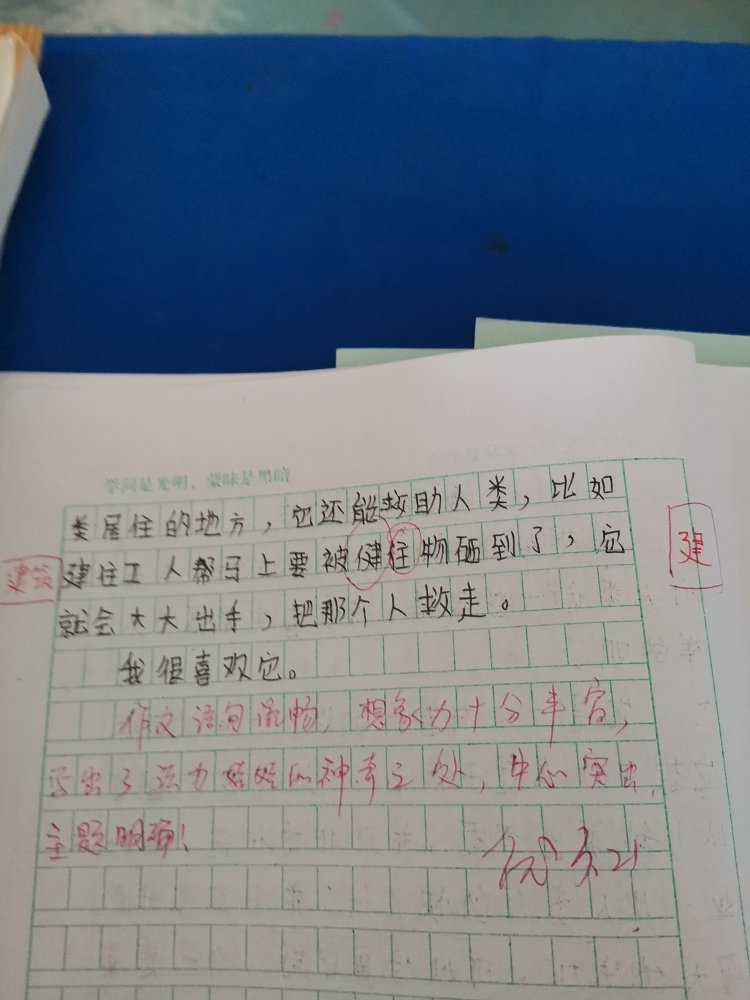 学问是光明、蒙昧是黑暗
类居住的地方，它还能救助人类，比如
建筑
建住工人帮马上要被健住物砸到了，它
建
就会大大出手，把那个人救走。
我很喜欢它。
作文语句流畅，想象力十分丰富，
写出了强力蛙蛙的神奇之处，中心突出，
主题明确！
优